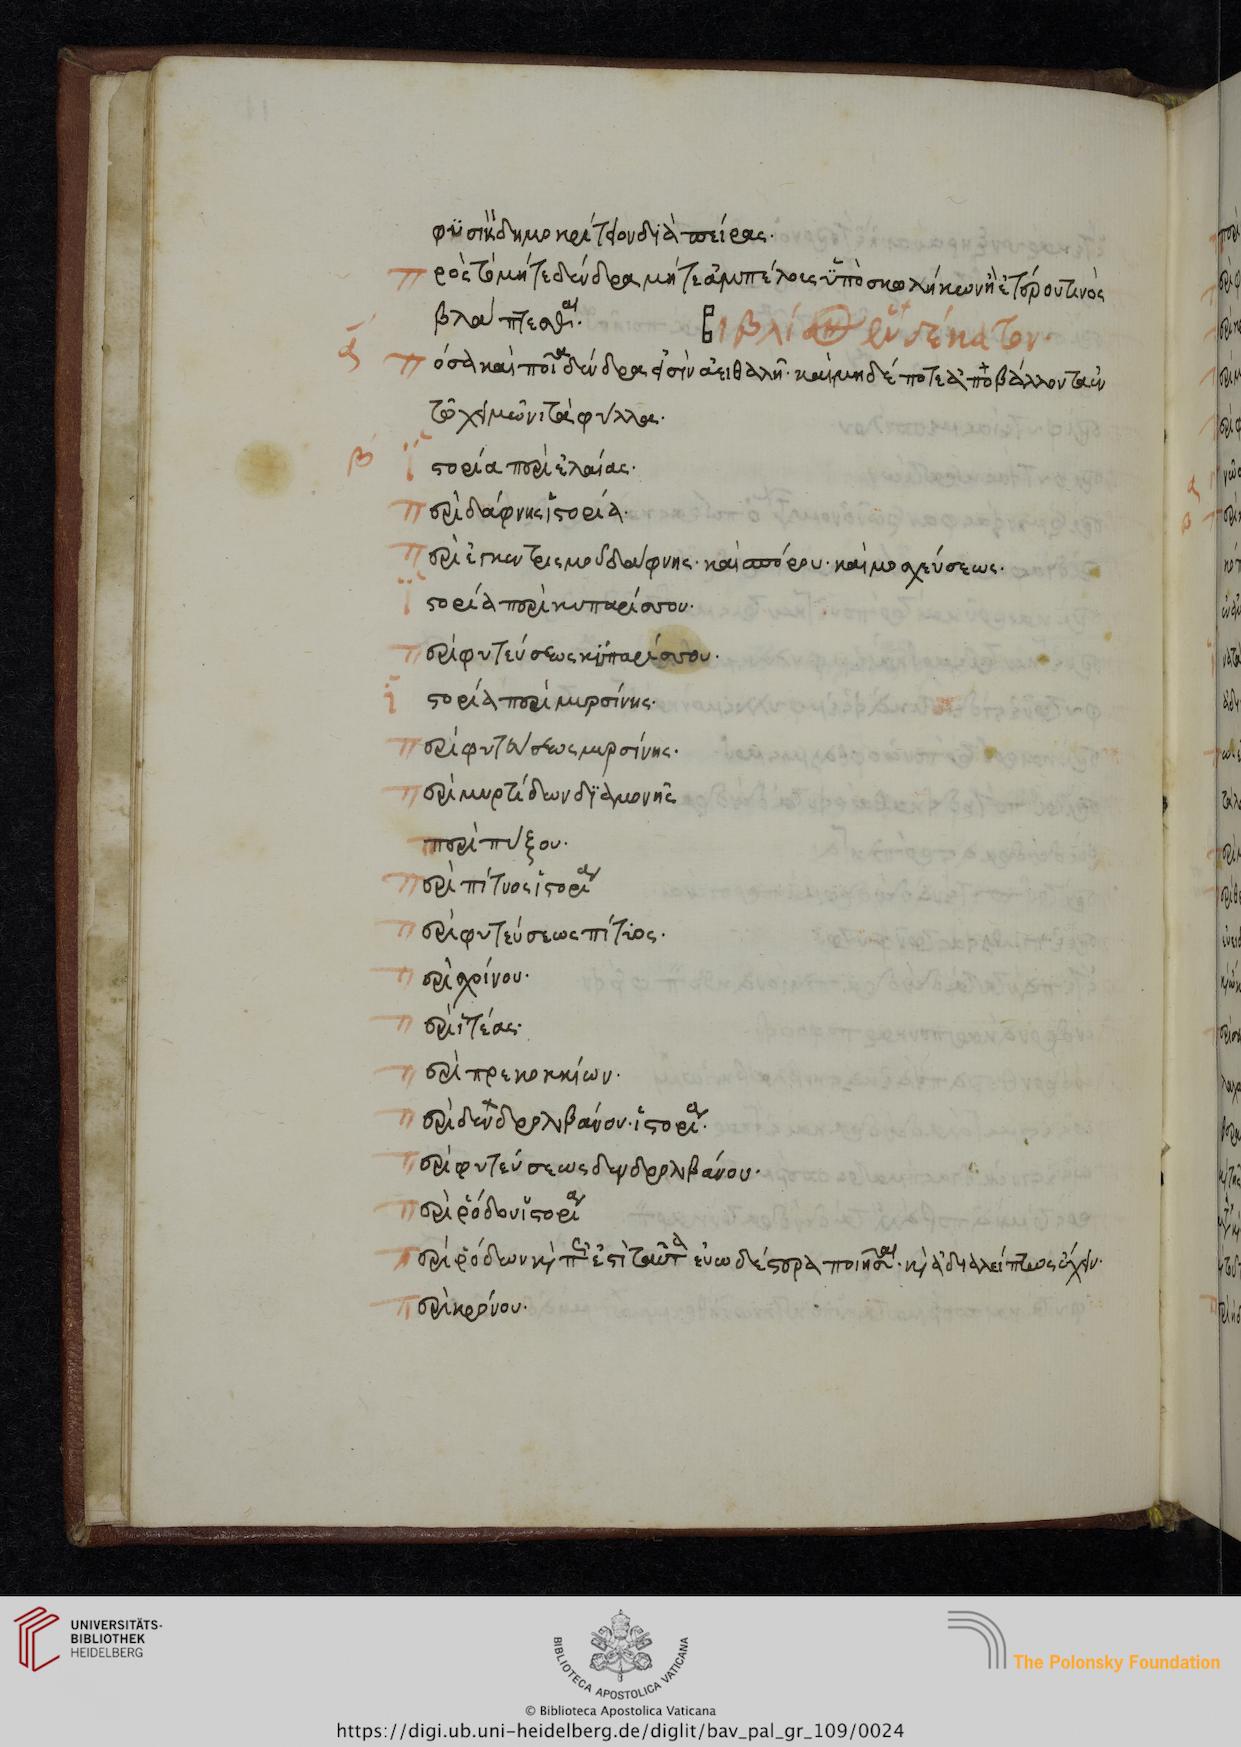 φϋσικ δημοκρίτου διὰ πείρας·
πρὸς τὸ μήτε δένδρα μήτε ἀμπέλοις ὑπὸ σκωλήκων ἢ ἑτέρου τινὸς
βλάπτεσθαι·
Βιβλίον ἑνδέκατον·
α πόσα καὶ ποῖα δένδρα εἰσὶν ἀειθαλῆ· καὶ μηδέποτε ἀποβάλλοντα ἐν
τῷ χειμῶνι τὰ φύλλα·
β ἱστορία περὶ ἐλαίας·
περὶ δάφνης ἱστορία·
περὶ ἐγκεντρισμοῦ δάφνης· καὶ σπόρου· καὶ μοσχεύσεως·
ἱστορία περὶ κυπαρίσσου·
περὶ φυτεύσεως κυπαρίσσου·
ἱστορία περὶ μυρσίνης·
περὶ φυτεύσεως μυρσίνης·
περὶ μυρτίδων διαμονῆς
περὶ πύξου·
περὶ πίτυος ἱστορία
περὶ φυτεύσεως πίτυος·
περὶ σχοίνου·
περὶ ἰτέας·
περὶ πρεκοκκίων·
περὶ δενδρολιβάνου· ἱστορία·
περὶ φυτεύσεως δενδρολιβάνου·
περὶ ῥόδου ἱστορία
περὶ ῥόδων κ̀ ἔτι ταῦτα εὐωδέστερα ποιῆσαι· κ̀ ἀδιαλείπτως ἔχειν·
περὶ κρίνου·
UNIVERSITÄTS-
BIBLIOTHEK
HEIDELBERG
BIBLIOTECA APOSTOLICA VATICANA
The Polonsky Foundation
© Biblioteca Apostolica Vaticana
https://digi.ub.uni-heidelberg.de/diglit/bav_pal_gr_109/0024